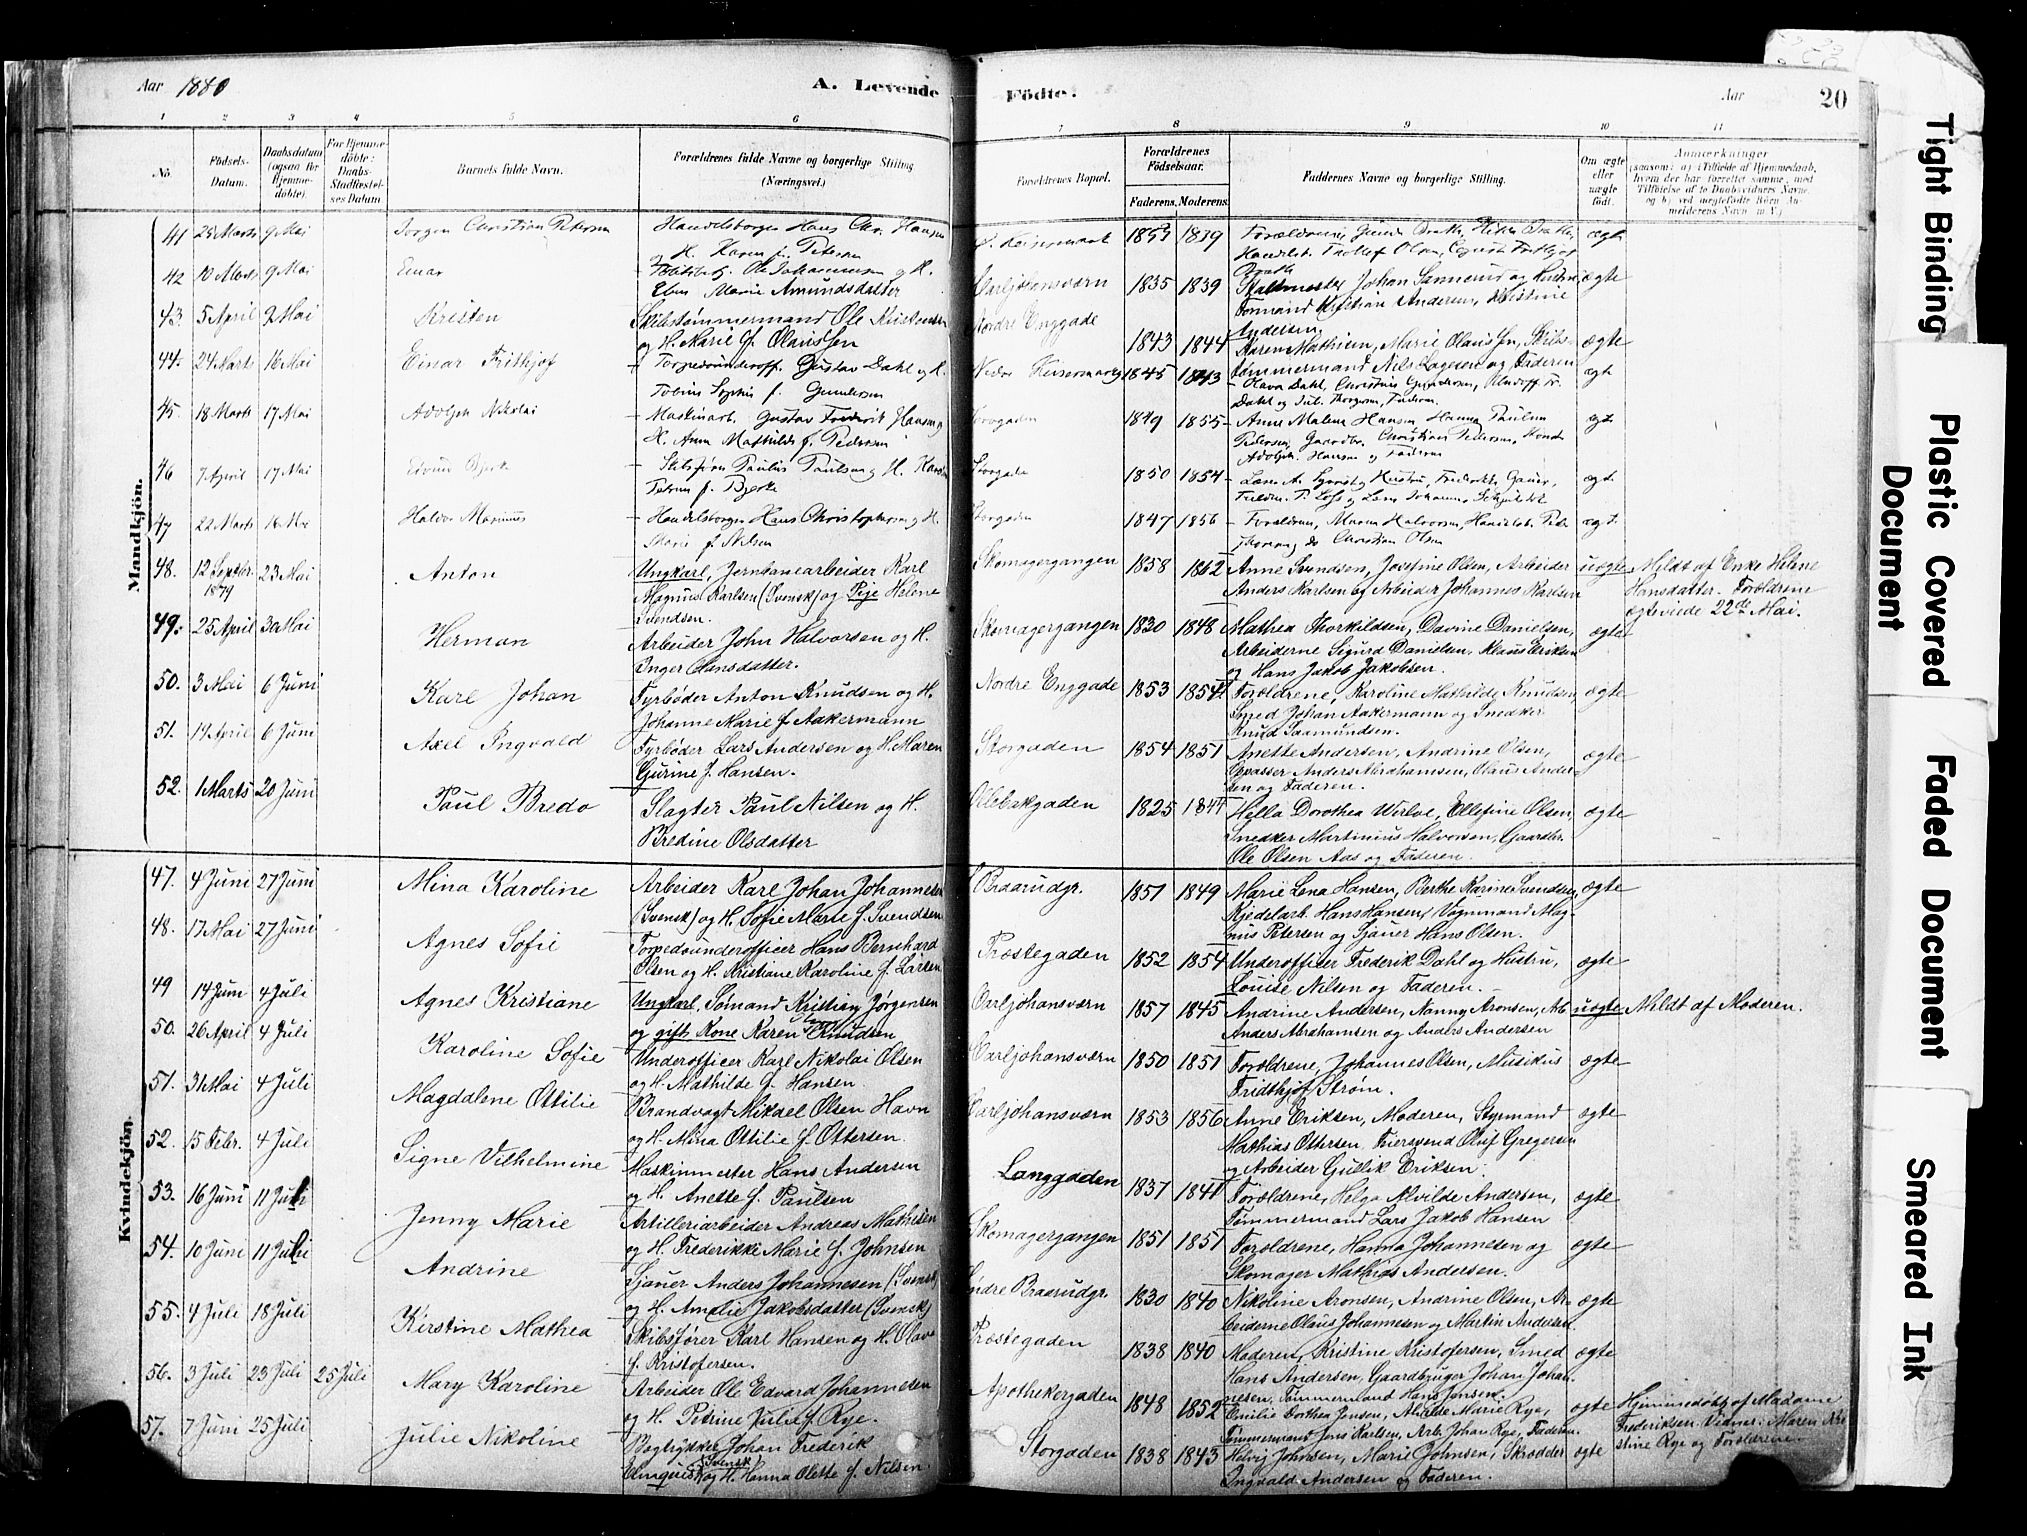 Aar 1880
A. Levende
Födte.
Aar
20
1 2 3 4 5 6 7 8 9 10 11
No.
Födsels-Datum.
Daabsdatum (ogsaa for Hjemme-döbte).
For Hjemme-döbte: Daabs-Stadfæstel-ses Datum
Barnets fulde Navn.
Forældrenes fulde Navne og borgerlige Stilling (Næringsvei.)
Forældrenes Bopæl.
Forældrenes Födselsaar.
Faderens. Moderens.
Faddernes Navne og borgerlige Stilling.
Om ægte eller uægte födt.
Anmærkninger
(saasom: a) i Tilfælde af Hjemmedaab, hvem der har forrettet samme, med Tilföielse af to Daabsvidners Navne, og b) ved uægtefödte Börn An-melderens Navn m. V.)
Mandkjön.
41 9 Mai Jorgen Christian Petersen Handelsborger Hans Chr. Hansen
og H. Karen f. Petersen 1839 Forældrene ægt
42 10 Marts 9 Mai Einar
Marie Amundsdatter Carljohansværn 1835 1839 Johan Sannerud og Hustru ægte
Formand Kristian Andersen, Kristine
Andersen
43. 5 April 9 Mai Kristen Skibstømmermand Ole Kristensen
og H. Marie f. Olaussen Nordre Enggade 1843 1844 Karen Mathisen, Marie Olaussen, Skibs- ægte
tømmermand Nils Lagesen og Faderen
44. 24 Marts 16 Mai Einar Frithjof Torpedounderoff. Gustav Dahl og H.
Sophie f. Gundersen 1845 1843 Dahl, Christine Gundersen ægt
45. 18 Marts 17 Mai Adolph Nikolai Maskinarb. Gustav Frederik Hansen og
H. Anna Mathilde f. Pedersen 1849 1855 Anne Malene Hansen Hanna Paulsen ægt
Pedersen, Gaardbr. Christian Pedersen
Adolph Hansen og Faderen
46 7 April 17 Mai Edvard Bjerke Skibsfører Paulus Paulsen og H.
Petrea f. Bjerke Storgade 1850 1854 ægt
47 22 Marts Halvor Marinius Handelsborger Hans Christophersen og H.
Marie f. Nilsen Storgaden 1847 1856 Forældrene, Maren Halvorsen ægt.
Christian Olsen
48. 12 Septbr. 1879 23 Mai Anton Ungkarl, Jernbanearbeider Karl
Magnus Karlsen (Svensk) og Pige Helene
Svendsen. Skomagergangen 1858 1862 Anne Svendsen, Josefine Olsen, Arbeider uægte Meldt af Enke Helene
Anders Karlsen og Arbeider Johannes Karlsen Hansdatter. Forældrene
ægteviede 22de Mai.
49. 25 April 30 Mai Herman Arbeider John Halvorsen og H.
Inger Hansdatter. Skomagergangen 1830 1848 Mathea Thorkildsen, Davine Danielsen, ægte
Arbeiderne Sigurd Danielsen, Klaus Eriksen
og Hans Jakob Jakobsen.
50. 3 Mai 6 Juni Karl Johan Fyrbøder Anton Knudsen og H.
Johanne Marie f. Aakermann Nordre Enggade 1853 1854 Forældrene, Karoline Mathilde Knudsen, ægte
Smed Johan Aakermann og Snedker
Knud Saamundsen.
51. 19 April 6 Juni Axel Ingvald Fyrbøder Lars Andersen og H. Maren
Gurine f. Hansen. Storgaden 1854 1851 Anette Andersen, Andrine Olsen, ægte
Opvasser Anders Abrahamsen, Olaus Ander-
sen og Faderen.
52. 1 Marts 20 Juni Paul Bredo Slagter Paul Nilsen og H.
Bredine Olsdatter Ollebakgaden 1825 1844 Hella Dorothea Wirlve, Ellefine Olsen, ægte
Snedker Martinius Halvorsen, Gaardbr.
Ole Olsen Aas og Faderen.
Kvindekjön.
47. 4 Juni 27 Juni Mina Karoline Arbeider Karl Johan Johannesen
(Svensk) og H. Sofie Marie f. Svendsen Braarudgr. 1851 1849 Marie Lena Hansen, Berthe Karine Svendsen, ægte
Kjedelarb. Hans Hansen, Vognmand Mag-
nus Petersen og Sjauer Hans Olsen.
48. 17 Mai 27 Juni Agnes Sofie Torpedounderofficer Hans Bernhard
Olsen og H. Kristiane Karoline f. Larsen Præstegaden 1852 1854 Underofficer Frederik Dahl og Hustru, ægte
Louise Nilsen og Faderen.
49 14 Juni 4 Juli Agnes Kristiane Ungkarl, Sømand Kristian Jørgensen
og gift Kone Karen Knudsen Carljohansværn 1857 1845 Andrine Andersen, Nanny Aronsen, Arb. uægte Meldt af Moderen.
Anders Abrahamsen og Anders Andersen
50. 26 April 4 Juli Karoline Sofie Underofficer Karl Nikolai Olsen
og H. Mathilde f. Hansen Carljohansværn 1850 1851 Forældrene, Johannes Olsen, Musikus ægte
Fridthjof Strøm.
51. 31 Mai 4 Juli Magdalene Ottilie Brandvagt Mikael Olsen Havn
og H. Mina Ottilie f. Ottersen. Carljohansværn 1853 1856 Anne Eriksen, Moderen, Styrmand ægte
Mathias Ottersen, Feiersvend Oluf Gregersen
og Arbeider Gullik Eriksen.
52. 15 Febr. 4 Juli Signe Vilhelmine Maskinmester Hans Andersen
og H. Anette f. Paulsen Langgaden 1837 1841 Forældrene, Helga Alvilde Andersen, ægte
Tømmermand Lars Jakob Hansen
53. 16 Juni 11 Juli Jenny Marie Artilleriarbeider Andreas Mathisen
og H. Frederikke Marie f. Johnsen Skomagergangen 1851 1851 Forældrene, Hanna Johannesen og ægte
Skomager Mathias Andersen.
54. 10 Juni 11 Juli Andrine Sjauer Anders Johannesen (Svensk)
og H. Amelie Jakobsdatter (Svensk) Søndre Braarudgr. 1830 1840 Nikoline Aronsen, Andrine Olsen, Ar- ægte
beiderne Olaus Johannesen og Martin Andersen.
55. 4 Juli 18 Juli Kirstine Mathea Skibsfører Karl Hansen og H. Olave
f. Kristofersen. Præstegaden 1838 1840 Moderen, Kristine Kristofersen, Smed ægte
Hans Andersen, Gaardbruger Johan Johan-
nesen, Tømmermand Hans Jensen.
56. 3 Juli 23 Juli 25 Juli Mary Karoline Arbeider Ole Edvard Johannesen
og H. Petrine Julie f. Rye. Apothekergaden 1848 1852 Emilie Dorthea Jensen, Alvilde Marie Rye, ægte Hjemmedøbt af Madame
Tømmermand Jens Karlsen, Arb. Johan Rye, Faderen Frederiksen. Vidner: Maren Kri-
stine Rye og Forældrene
57. 7 Juni 25 Juli Julie Nikoline Bogtrykker Johan Frederik
Elmquist (Svensk) og H. Hanna Olette f. Nilsen. Storgaden 1838 1843 Helvig Johnsen, Marie Johnsen, Skrædder ægte
Ingvald Andersen og Faderen.
Tight Binding
Plastic Covered Document
Faded Document
Smeared Ink